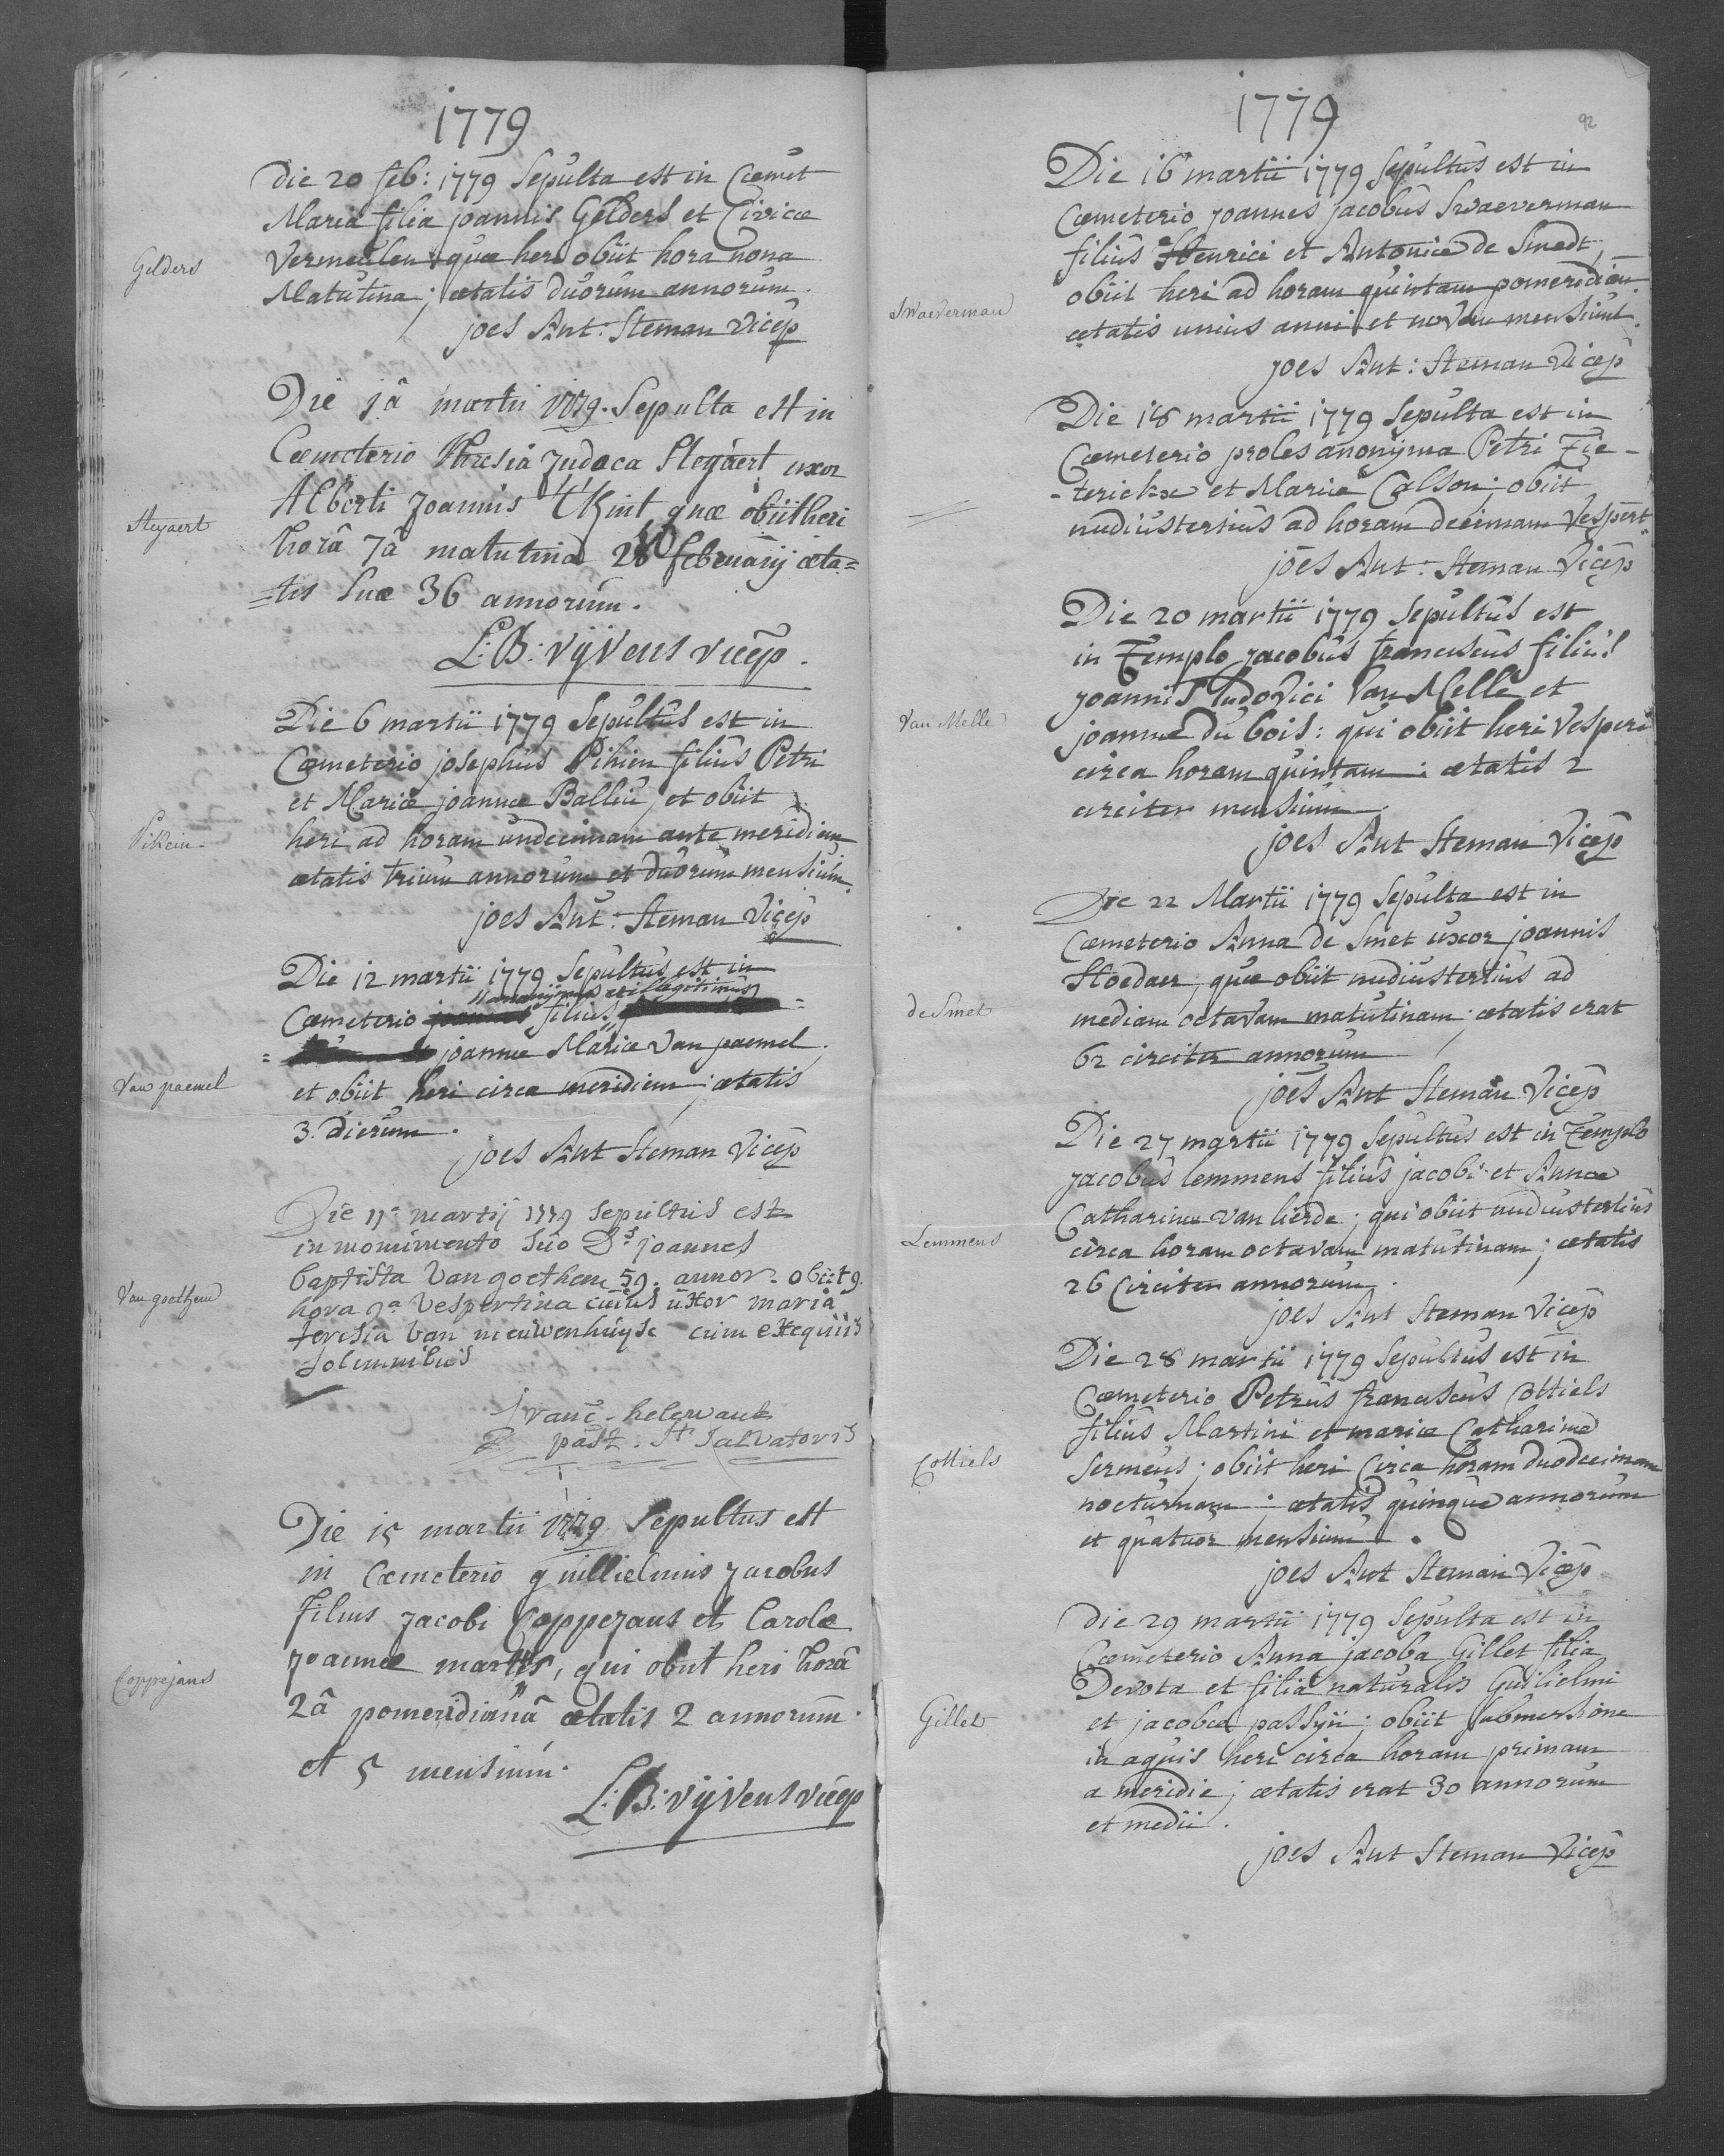 1779
Die 20 feb: 1779 Sepulta est in Coemet
Maria filia joannis Gelders et Livicæ
Vermeulen quæ heri obiit hora nona
Matutina; ætatis duorum annorum.
Gelders
joes Ant: Steman Vicep
Die 1â martii 1779. Sepulta est in
Coemeterio Thresia Judoca Steyaert uxor
Alberti Joannis 't Kint quæ obiit heri
Steyaert
horâ 7â matutina 28 februarij æta=
=tis suæ 36 annorum.
L: B: Vyvens vicep.
Die 6 martii 1779 Sepultus est in
Coemeterio josephus Pihien filius Petri
et Mariæ joannæ Balliu, et obiit
heri ad horam undecimam ante meridiem
Pikein
ætatis trium annorum et duorum mensium.
joes Ant: Steman Vicep
Die 12 martii 1779 Sepultus est in
anonijmus et illegitimus
Coemeterio filius
joannæ Mariæ Van paemel
Van paemel
et obiit heri circa meridiem; ætatis
3. dierum.
joes Ant Steman Vicep
Die 11a martij 1779 sepultus est
in monumento suo Ds joannes
baptista Van goethem 59. annor. obiit 9.
Van goethem
hora 9a Vespertina cuius uxor maria
teresia Van nieuwenhuyse cum exequiis
solemnibus
franc. helewaut
past. Sti Salvatoris
Die 15 martii 1779 Sepultus est
in Coemeterio guillielmus Jacobus
filius Jacobi Coppejans et Carolæ
Joannæ martens, qui obiit heri horâ
Coppejans
2â pomeridianâ ætatis 2 annorum
et 5 mensium.
L: B: Vyvens vicep
1779
92
Die 16 martii 1779 Sepultus est in
Coemeterio joannes jacobus Swaeverman
filius Henrici et Antoniæ de Smedt,
obiit heri ad horam quintam pomeridian.
Swaeverman
ætatis unius anni et novem mensium.
joes Ant: Steman Vicep
Die 18 martii 1779 Sepulta est in
Coemeterio proles anonyma Petri Die-
-terickx et Mariæ Calson; obiit
nudiustertius ad horam decimam Vespert.
joes Ant: Steman Vicep
Die 20 martii 1779 Sepultus est
in Templo jacobus franciscus filius
joannis ludovici Van Melle et
Van Melle
joannæ du bois: qui obiit heri Vesperi
circa horam quintam; ætatis 2
circiter mensium.
joes Ant Steman Vicep
Die 22 Martii 1779 Sepulta est in
Coemeterio Anna de Smet uxor joannis
Stoedaer, quæ obiit nudiustertius ad
de Smet
mediam octavam matutinam; ætatis erat
62 circiter annorum
joes Ant Steman Vicep
Die 27 martii 1779 Sepultus est in Templo
jacobus lemmens filius jacobi et Annæ
Catharinæ Van lierde; qui obiit nudiustertius
Lemmens
circa horam octavam matutinam; ætatis
26 Circiter annorum.
joes Ant Steman Vicep
Die 28 martii 1779 Sepultus est in
Coemeterio Petrus franciscus Cottiels
filius Martini et mariæ Catharinæ
Cottiels
Sermeus; obiit heri Circa horam duodecimam
nocturnam; ætatis quinque annorum
et quatuor mensium.
joes Ant Steman Vicep
Die 29 martii 1779 Sepulta est in
Coemeterio Anna jacoba Gillet filia
Devota et filia naturalis Guilielmi
Gillet
et jacobæ passyn; obiit submersione
in aquis heri circa horam primam
a meridie; ætatis erat 30 annorum
et medii.
joes Ant Steman Vicep